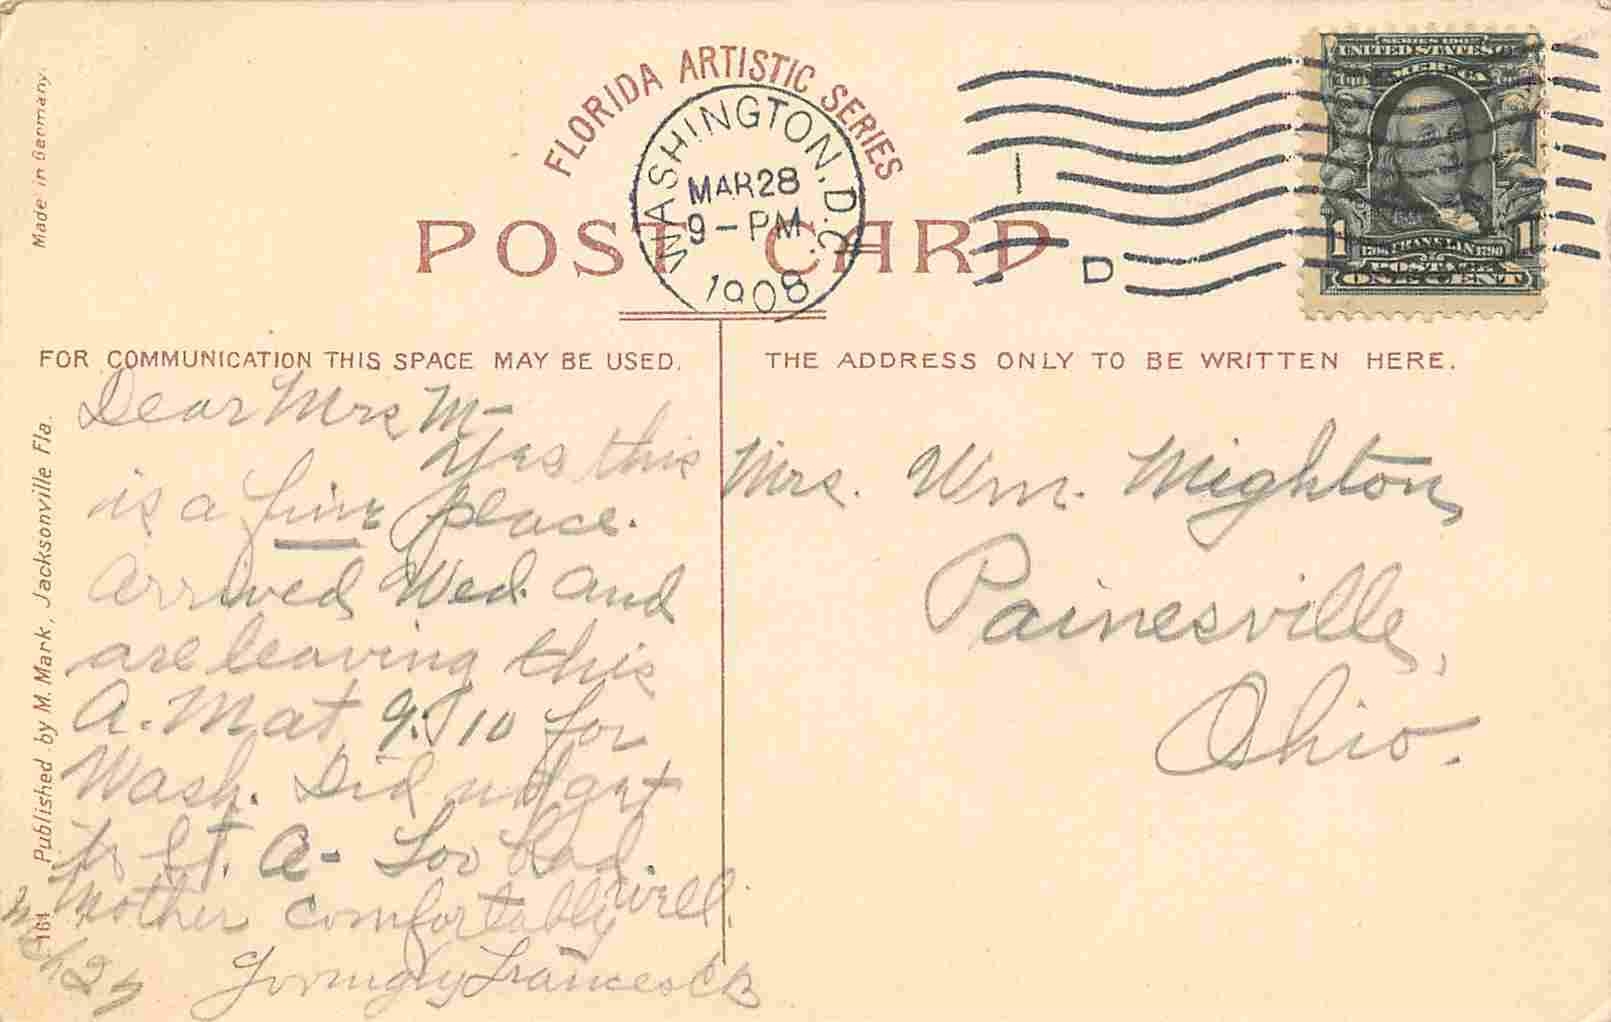 FLORIDA ARTISTIC SERIES
POST CARD
WASHINGTON, D.C.
MAR 28
9-PM
1908
1
D
SERIES 1902
UNITED STATES OF
AMERICA
1706 FRANKLIN 1790
1 1
POSTAGE
ONE CENT
Made in Germany.
FOR COMMUNICATION THIS SPACE MAY BE USED.
THE ADDRESS ONLY TO BE WRITTEN HERE.
Published by M. Mark, Jacksonville Fla.
161
Dear Mrs M-
Yes this
is a fine place.
Arrived Wed. and
are leaving this
A.M at 9:10 for
Wash. Did not get
to St. A- Too bad.
Mother comfortably well.
Lovingly Frances
Mch 27
Mrs. Wm. Mighton,
Painesville,
Ohio.